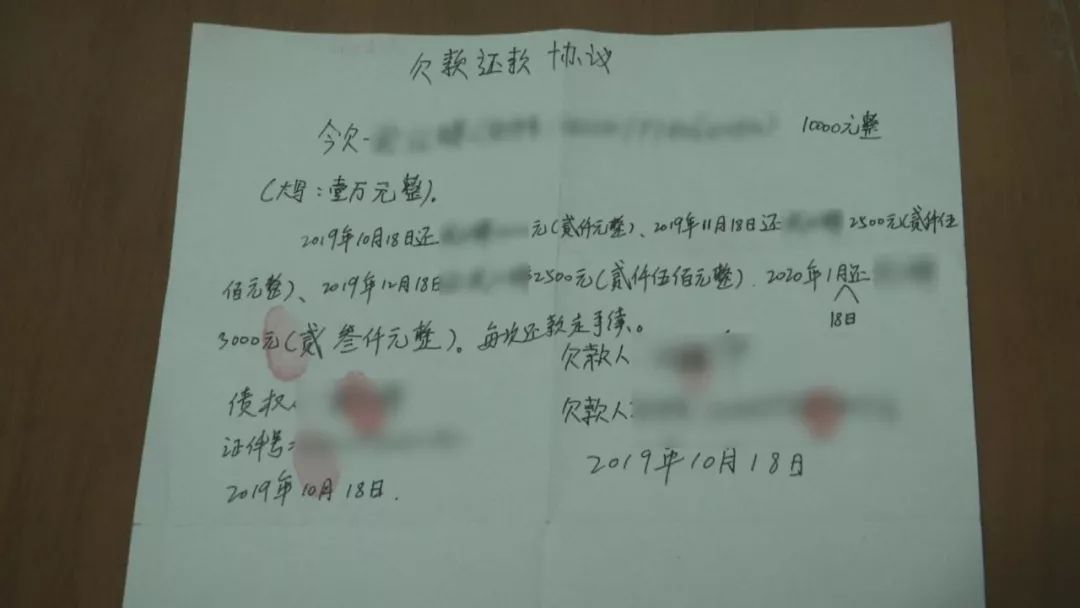 欠款还款协议
今欠 10000元整
(大写:壹万元整)。
2019年10月18日还 元(贰仟元整)、2019年11月18日还 2500元(贰仟伍
佰元整)、2019年12月18日 2500元(贰仟伍佰元整). 2020年1月还
18日
3000元(贰 叁仟元整)。每次还款走手续、。
欠款人
债权人
欠款人:
证件号:
2019年10月18日
2019年10月18日.